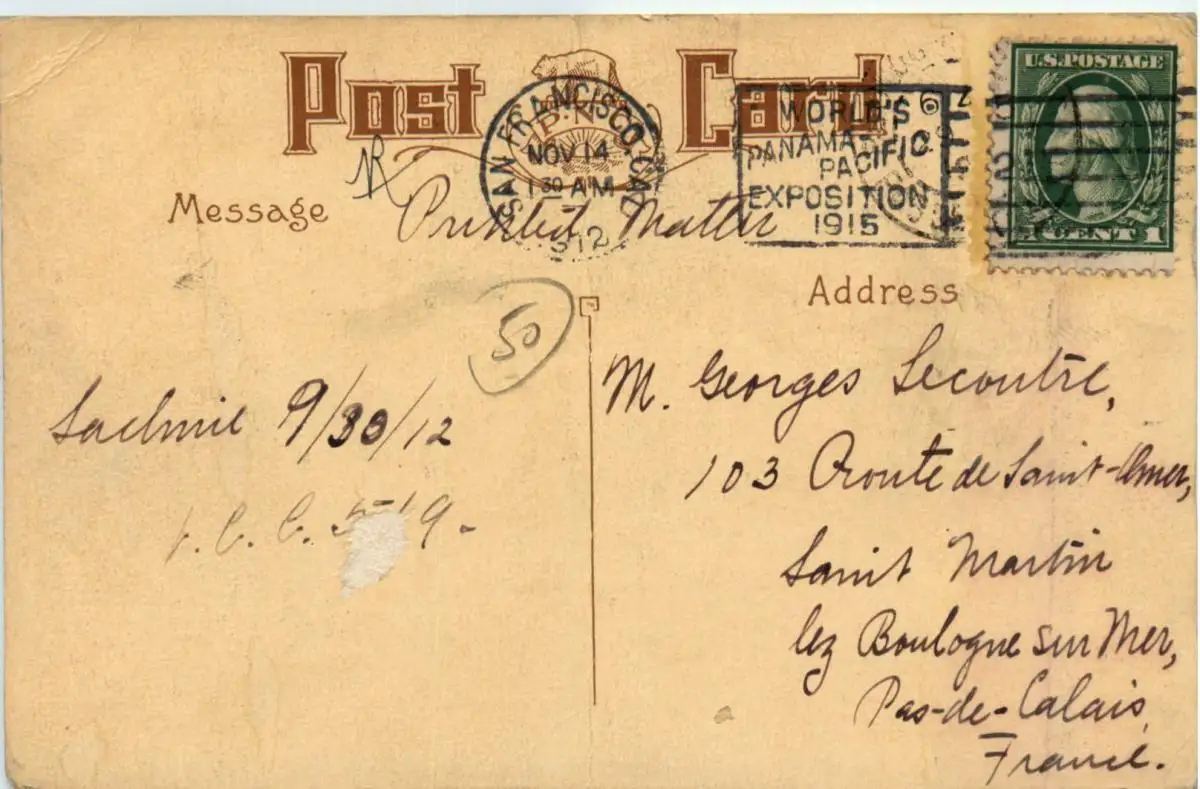 Post Card
U.S. POSTAGE
SAN FRANCISCO CAL.
NOV 14
1 30 AM
1912
WORLD'S
PANAMA-
PACIFIC
EXPOSITION
1915
1 CENT 1
Message
Printed Matter
Address
50
M. Georges Lecoutre,
9/30/12
103 Route de Saint-Omer,
Saint Martin
lez Boulogne sur Mer,
Pas-de-Calais,
France.